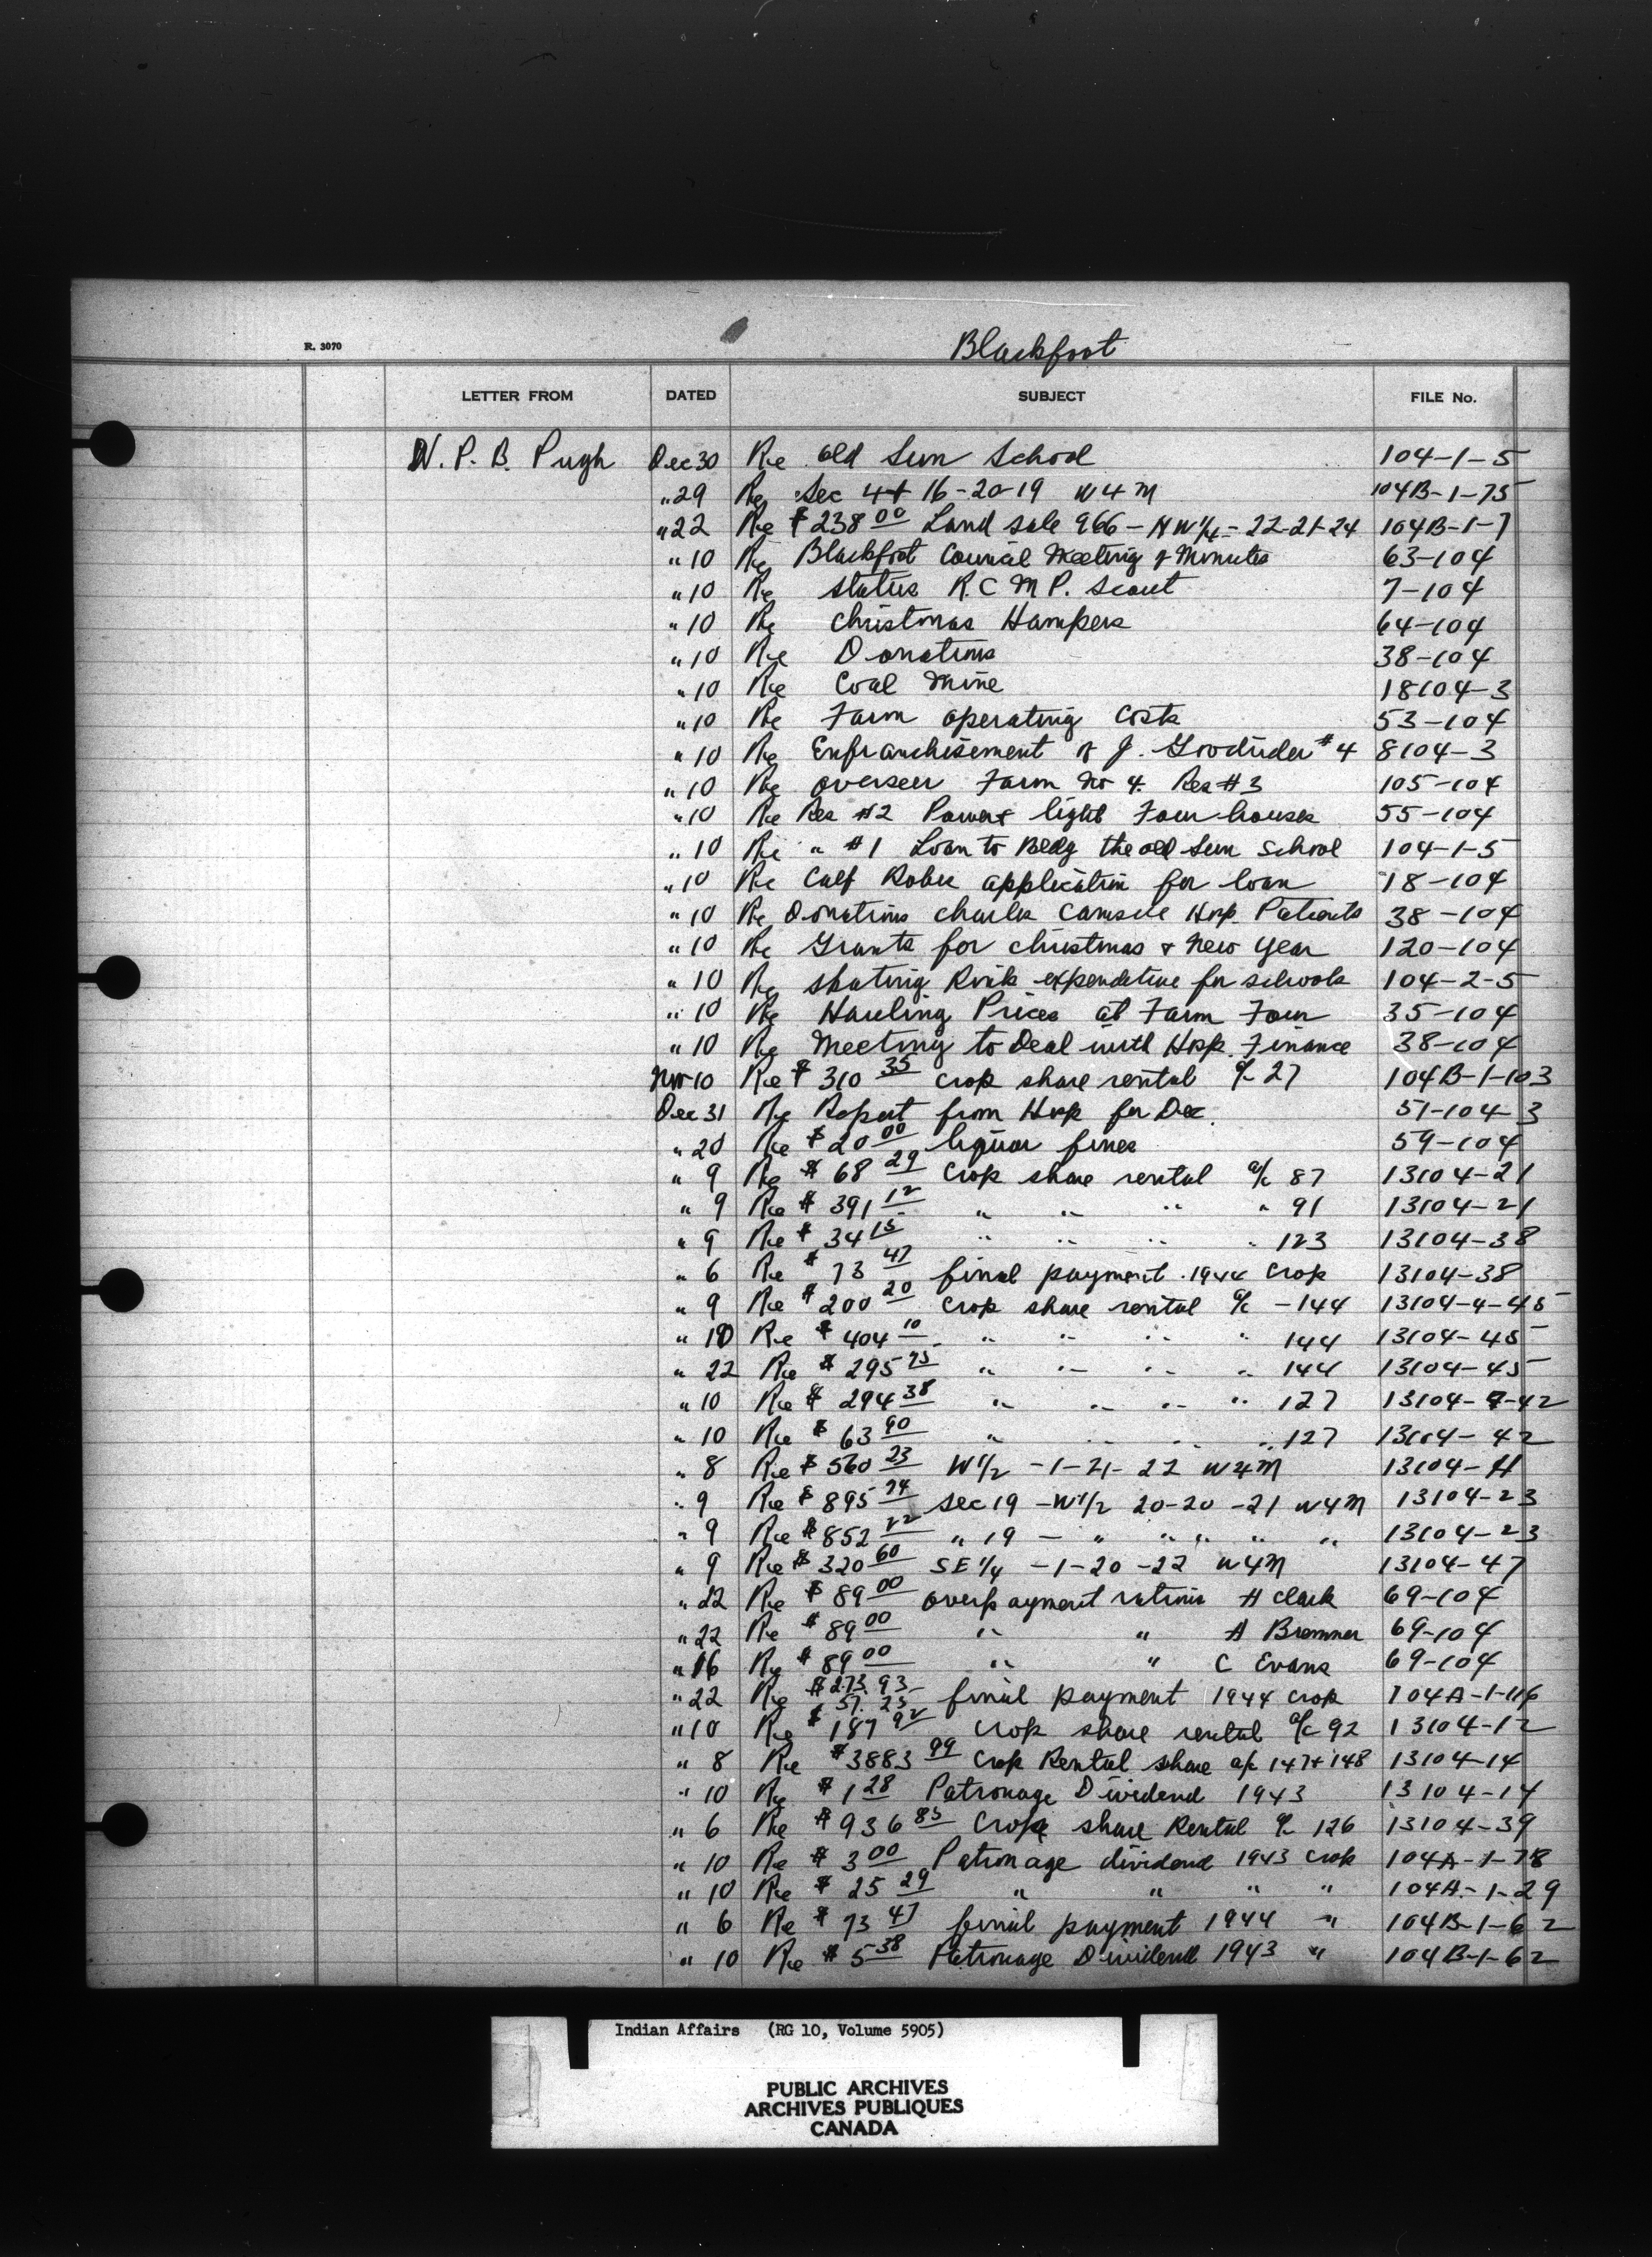 R. 3070
Blackfoot
LETTER FROM DATED SUBJECT FILE No.
W. P. B. Pugh Dec 30 Re Old Sun School 104-1-5
" 29 Re Sec 4 + 16-20-19 W4M 104B-1-75
" 22 Re $238 00 Land sale 966 - NW 1/4 - 22-21-24 104B-1-7
" 10 Re Blackfoot Council Meeting & Minutes 63-104
" 10 Re status R.C M P. Scout 7-104
" 10 Re Christmas Hampers 64-104
" 10 Re Donations 38-104
" 10 Re Coal Mine 18104-3
" 10 Re Farm operating Costs 53-104
" 10 Re Enfranchisement of J. #4 8104-3
" 10 Re overseer Farm No 4. Res #3 105-104
" 10 Re Res #2 Power + light Four houses 55-104
" 10 Re " #1 Loan to Bldg the old Sun School 104-1-5
" 10 Re Calf Robe application for loan 18-104
" 10 Re Donations Charles Camsell Hosp. Patients 38-104
" 10 Re Grants for Christmas & New Year 120-104
" 10 Re skating Rink expenditure for schools 104-2-5
" 10 Re Hauling Prices at Farm Four 35-104
" 10 Re Meeting to Deal with Hosp. Finance 38-104
Nov 10 Re $310 35 crop share rental a/c 27 104B-1-103
Dec 31 Re Report from Hosp for Dec. 51-104-3
" 20 Re $20 00 liquor fines 59-104
" 9 Re $68 29 Crop share rental a/c 87 13104-21
" 9 Re $391 12 " " " " 91 13104-21
" 9 Re $34 15 " " " " 123 13104-38
" 6 Re $73 47 final payment 1944 Crop 13104-38
" 9 Re $200 20 crop share rental a/c - 144 13104-4-45
" 10 Re $404 10 " " " " 144 13104-45
" 22 Re $295 75 " " " " 144 13104-45
" 10 Re $294 38 " " " " 127 13104-42
" 10 Re $63 90 " " " " 127 13104-42
" 8 Re $560 23 W 1/2 - 1-21-22 W4M 13104-
" 9 Re $895 74 sec 19 - W 1/2 20-20-21 W4M 13104-23
" 9 Re $852 22 " 19 - " " " " " 13104-23
" 9 Re $320 60 SE 1/4 - 1-20-22 W4M 13104-47
" 22 Re $89 00 overpayment H Clark 69-104
" 22 Re $89 00 " " A Bremner 69-104
" 16 Re $89 00 " " C Evans 69-104
" 22 Re $273.93 $57.25 final payment 1944 crop 104A-1-116
" 10 Re $187 92 crop share rental a/c 92 13104-12
" 8 Re $3883 99 Crop Rental share a/c 147 + 148 13104-14
" 10 Re $1 28 Patronage Dividend 1943 13104-14
" 6 Re $936 85 Crop share Rental a/c 126 13104-39
" 10 Re $3 00 Patronage dividend 1943 crop 104A-1-78
" 10 Re $25 29 " " " " 104A-1-29
" 6 Re $73 47 final payment 1944 " 104B-1-62
" 10 Re $5 38 Patronage Dividend 1943 " 104B-1-62
Indian Affairs (RG 10, Volume 5905)
PUBLIC ARCHIVES
ARCHIVES PUBLIQUES
CANADA